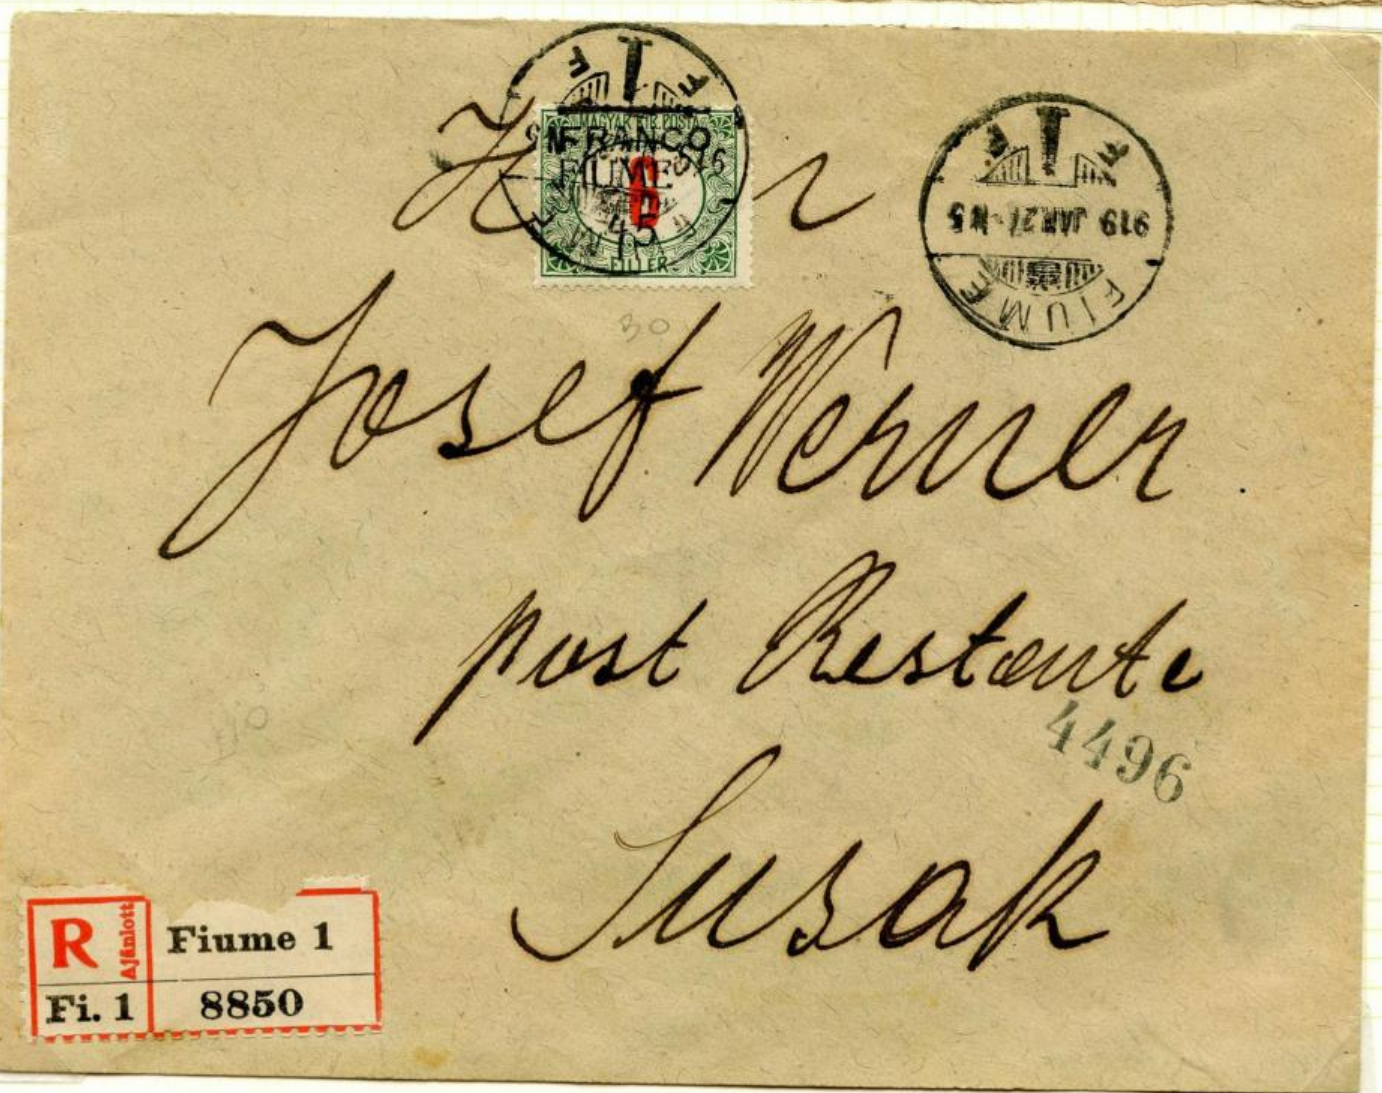 Herr
MAGYAR KIR. POSTA
FRANCO
FIUME
6
45
FILLER
919 JAN 27 N5
FIUME
30
Josef Werner
post Restante
4496
Susak
R
Ajánlott
Fiume 1
Fi. 1
8850